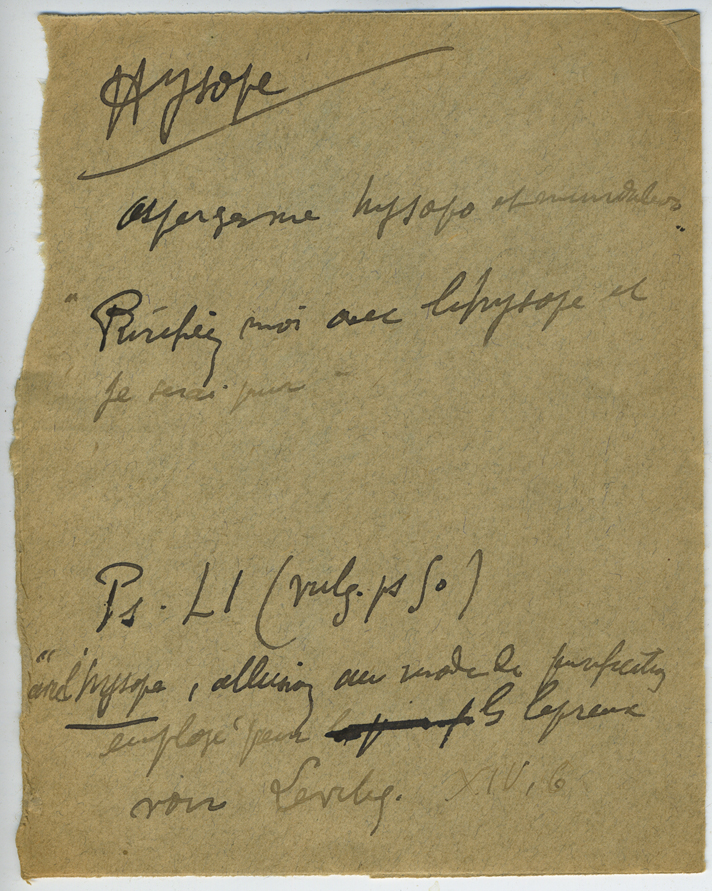 Hysope
asperges me hyssopo et mundabor
"Purifiez moi avec l'hysope et
je serai pur"
Ps. LI (vulg. ps 50)
"avec l'hysope, allusion au mode de purification
employé pour les lépreux
voir Levitiq. XIV, 6